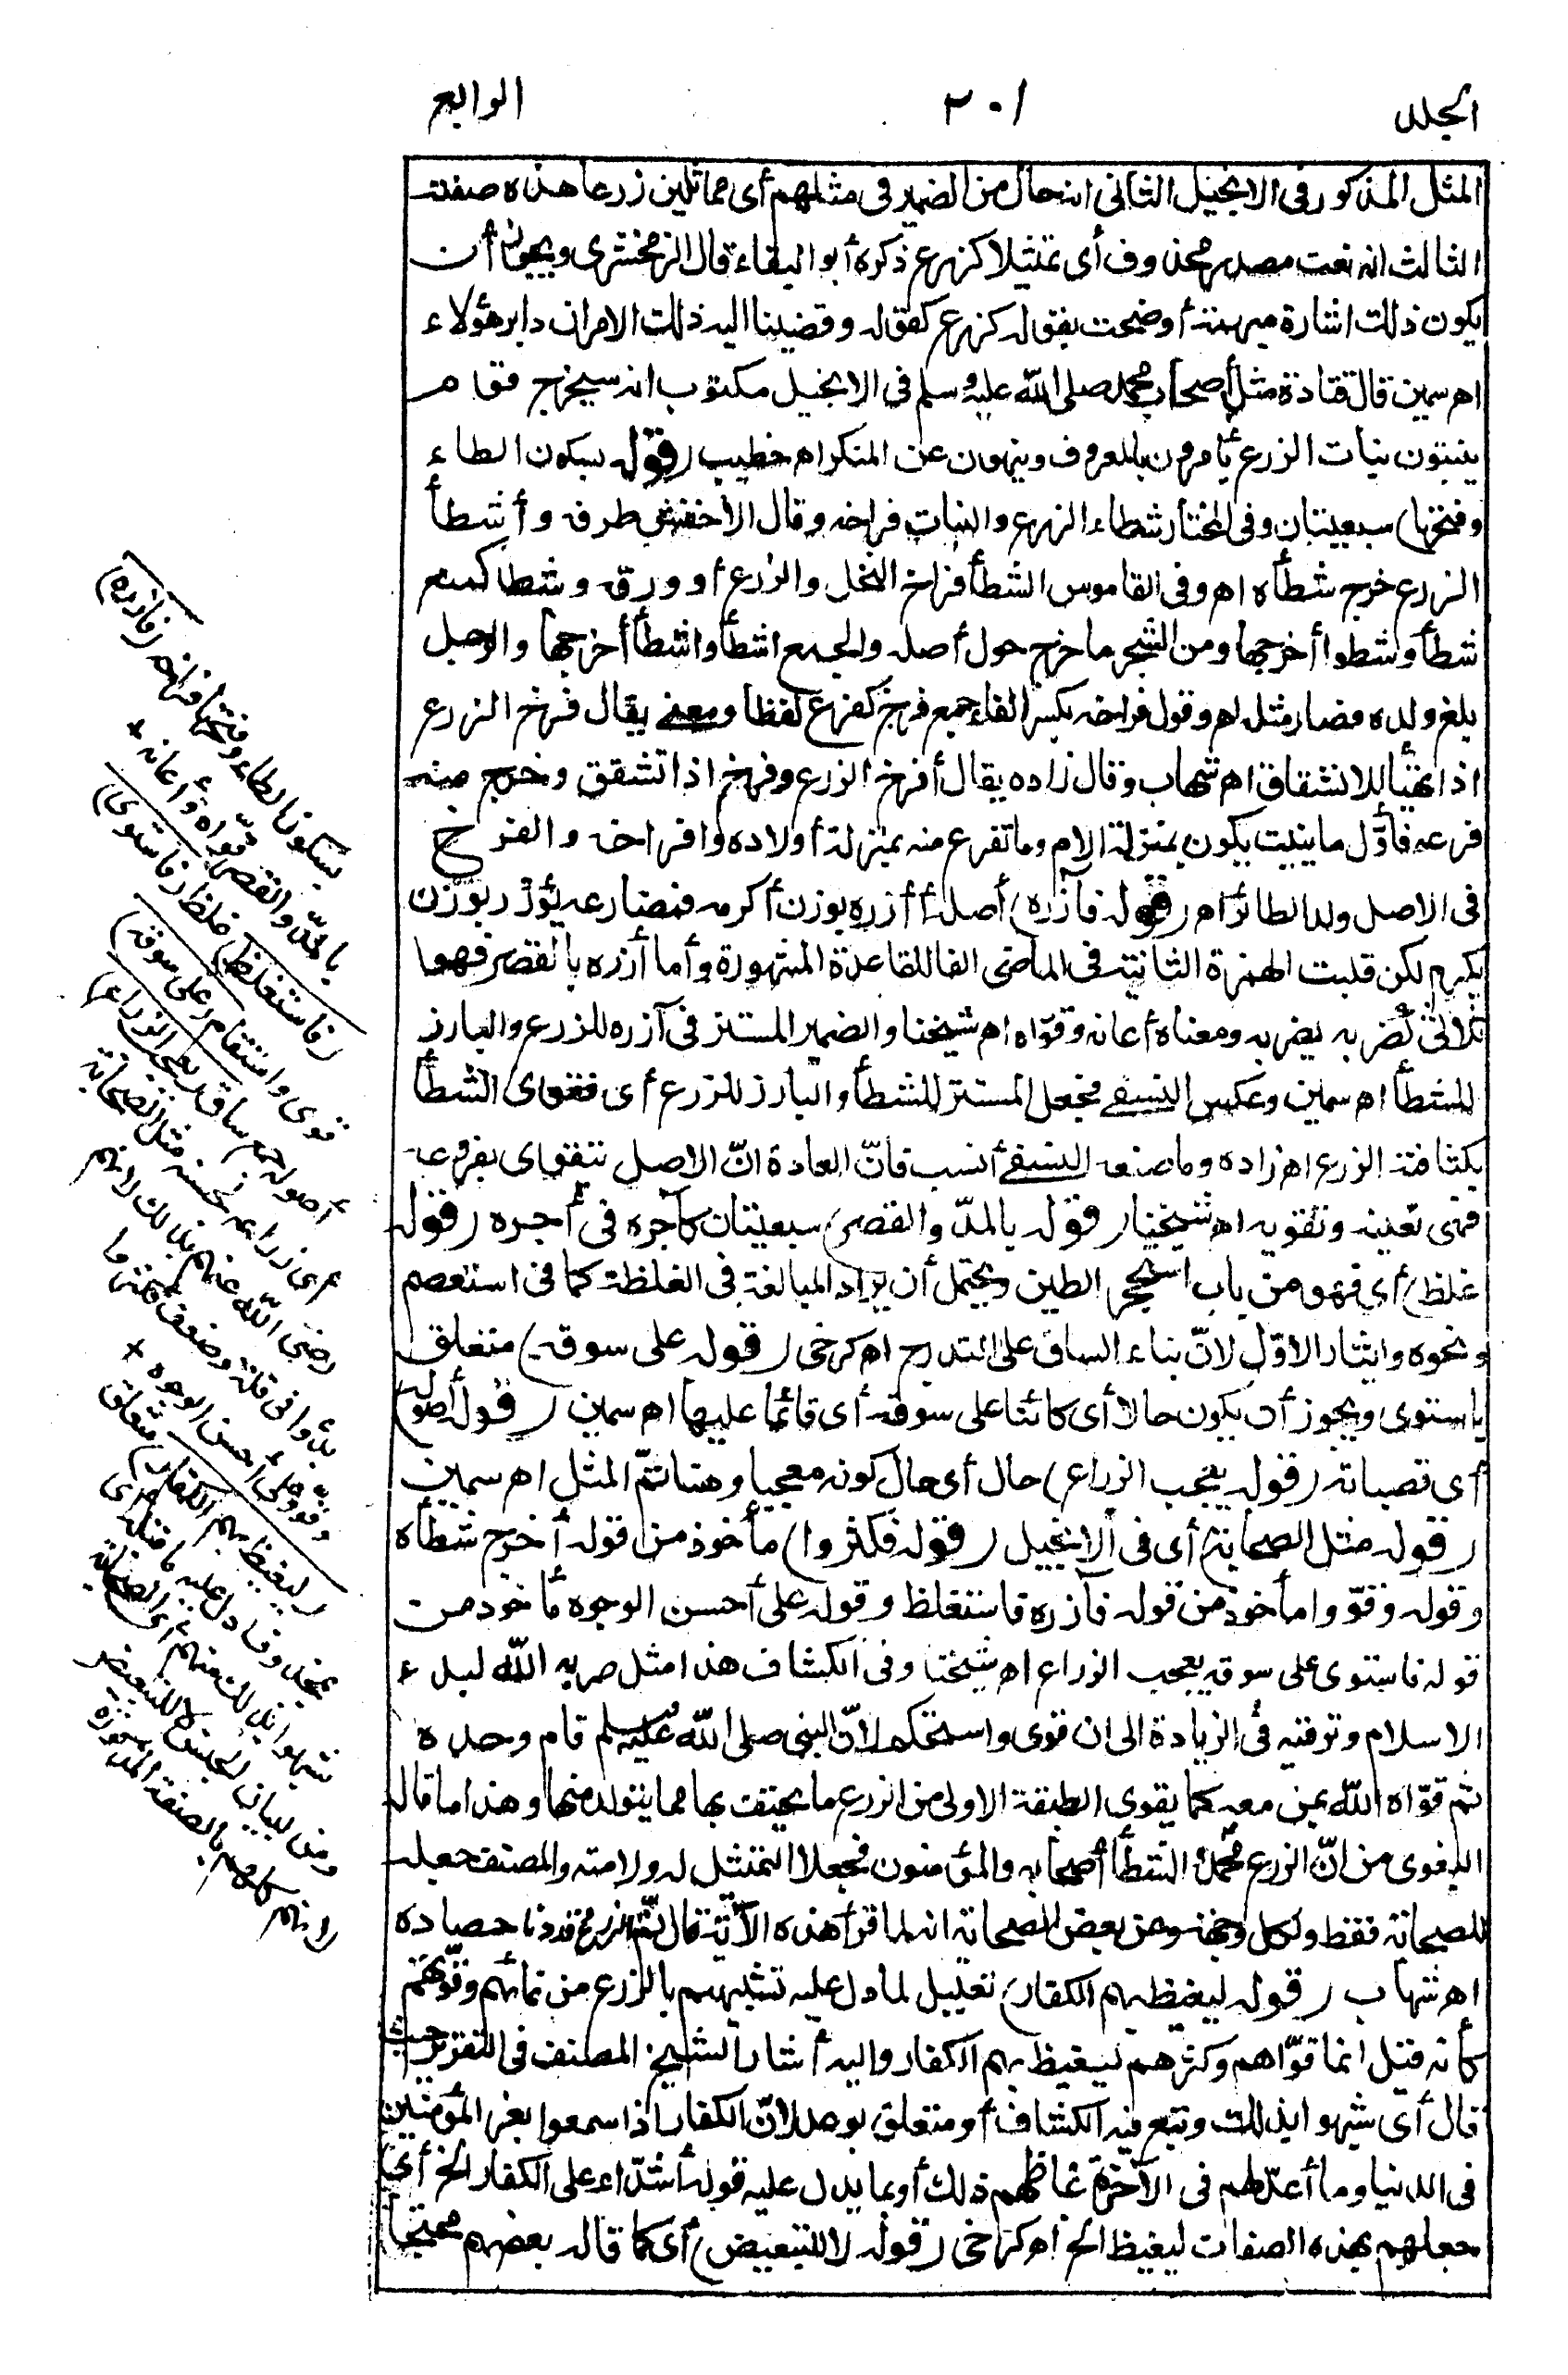 الجلد
٢٠١
الرابع
المثل المذكور فى الانجيل الثانى انه حال من الضمير فى مثلهم أى مماثلين زرعا هذه صفته
الثالث انه نعت مصدر محذوف أى تمثيلا كزرع ذكره أبو البقاء قال الزمخشرى ويجوز أن
يكون ذلك اشارة مبهمة أوضحت بقوله كزرع كقوله وقضينا اليه ذلك الامر ان دابر هؤلاء
اه سمين قال قتادة مثل أصحاب محمد صلى الله عليه وسلم فى الانجيل مكتوب انه سيخرج قوم
ينبتون نبات الزرع يأمرون بالمعروف وينهون عن المنكر اه خطيب (قوله بسكون الطاء
وفتحها) سبعيتان وفى المختار شطاء الزرع والنبات فراخه وقال الأخفش طرفه وأشطأ
الزرع خرج شطأه اه وفى القاموس الشطأ فراخ النخل والزرع أو ورقه وشطأ كمنع
شطأ وشطوأ أخرجها ومن الشجر ما خرج حول أصله والجمع اشطأ واشطأ أخرجها والرجل
بلغ ولده فصار مثله اه وقوله فراخه بكسر الفاء جمع فرخ كفرع لفظا ومعنى يقال فرخ الزرع
اذا تهيأ للانشقاق اه شهاب وقال زاده يقال أفرخ الزرع وفرخ اذا تشقق وخرج منه
فرعه فأول ما ينبت يكون بمنزلة الام وما تفرع منه بمنزلة أولاده وافراخه والفرخ
فى الاصل ولد الطائر اه (قوله فآزره) أصله أأزره بوزن أكرمه فمضارعه يؤزر بوزن
يكرم لكن قلبت الهمزة الثانية فى الماضى الفا للقاعدة المشهورة وأما أزره بالقصر فهو
ثلاثى كضربه يضربه ومعناه أعانه وقواه اه شيخنا والضمير المستتر فى آزره للزرع والبارز
للشطأ اه سمين وعكس النسفى فجعل المستتر للشطأ والبارز للزرع أى فقوى الشطأ
بكثافته الزرع اه زاده وما صنعه النسفى أنسب فان العادة ان الاصل يتقوى بفروعه
فهى تعينه وتقويه اه شيخنا (قوله بالمد والقصر) سبعيتان كآجره فى أجره (قوله
غلظ) أى فهو من باب استحجر الطين ويحتمل أن يراد المبالغة فى الغلظة كما فى استعصم
ونحوه وايثار الاول لان بناء الساق على التدرج اه كرخى (قوله على سوقه) متعلق
باستوى ويجوز أن يكون حالا أى كائنا على سوقه أى قائما عليها اه سمين (قوله أصوله)
أى قصباته (قوله يعجب الزراع) حال أى حال كونه معجبا وهنا تم المثل اه سمين
(قوله مثل الصحابة) أى فى الانجيل (قوله فكثروا) مأخوذ من قوله أخرج شطأه
وقوله وقووا مأخوذ من قوله فآزره فاستغلظ وقوله على أحسن الوجوه مأخوذ من
قوله فاستوى على سوقه يعجب الزراع اه شيخنا وفى الكشاف هذا مثل ضربه الله لبدء
الاسلام وترقيه فى الزيادة الى ان قوى واستحكم لان النبى صلى الله عليه وسلم قام وحده
ثم قواه الله بمن معه كما يقوى الطبقة الاولى من الزرع ما يحتف بها مما يتولد منها وهذا ما قاله
البغوى من ان الزرع محمد والشطأ أصحابه والمؤمنون فجعلا التمثيل له ولامته والمصنف جعله
للصحابة فقط ولكل وجهة وعن بعض الصحابة انه لما قرأ هذه الآية قال تم الزرع وقد دنا حصاده
اه شهاب (قوله ليغيظ بهم الكفار) تعليل لما دل عليه تشبيههم بالزرع من نمائهم وقوتهم
كأنه قيل انما قواهم وكثرهم ليغيظ بهم الكفار واليه أشار الشيخ المصنف فى التقرير حيث
قال أى شبهوا بذلك وتبع فيه الكشاف أو متعلق بوعد لان الكفار اذا سمعوا بعز المؤمنين
فى الدنيا وما أعد لهم فى الآخرة غاظهم ذلك أو بما يدل عليه قوله أشداء على الكفار الخ أى
جعلهم بهذه الصفات ليغيظ الخ اه كرخى (قوله لا للتبعيض) أى كما قاله بعضهم محتجا
بسكون الطاء وفتحها فراخه (فآزره)
بالمد والقصر قواه وأعانه
(فاستغلظ) غلظ (فاستوى)
قوى واستقام (على سوقه)
أصوله جمع ساق (يعجب الزراع)
أى زراعه لحسنه مثل الصحابة
رضى الله عنهم بذلك لانهم
بدؤا فى قلة وضعف فكثروا
وقووا على أحسن الوجوه
(ليغيظ بهم الكفار) متعلق
بمحذوف دل عليه ما قبله أى
شبهوا بذلك
ومن لبيان الجنس لا للتبعيض
لانهم كلهم بالصفة المذكورة